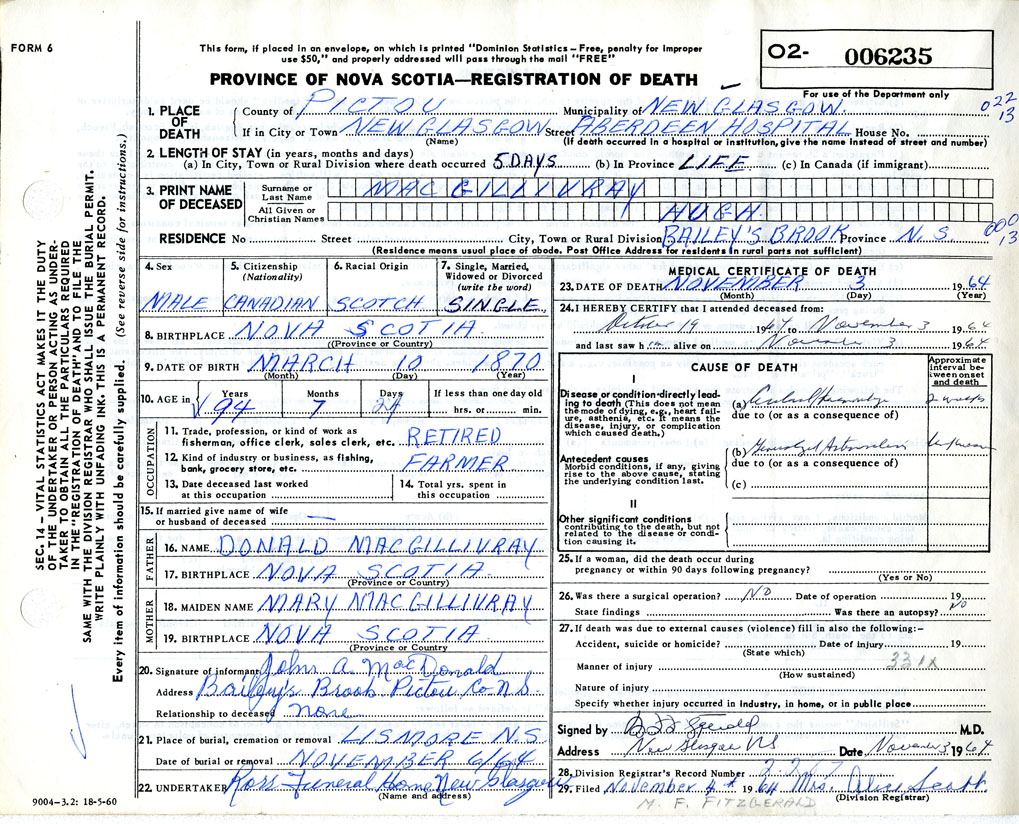 FORM 6
This form, if placed in an envelope, on which is printed "Dominion Statistics – Free, penalty for improper
use $50," and properly addressed will pass through the mail "FREE"
PROVINCE OF NOVA SCOTIA—REGISTRATION OF DEATH
O2- 006235
For use of the Department only
022
13
1. PLACE OF DEATH
County of PICTOU Municipality of NEW GLASGOW
If in City or Town NEW GLASGOW Street ABERDEEN HOSPITAL House No.
(Name) (If death occurred in a hospital or institution, give the name instead of street and number)
2. LENGTH OF STAY (in years, months and days)
(a) In City, Town or Rural Division where death occurred 5 DAYS (b) In Province LIFE (c) In Canada (if immigrant)
3. PRINT NAME OF DECEASED
Surname or Last Name MAC GILLIVRAY
All Given or Christian Names HUGH
000
13
RESIDENCE No Street City, Town or Rural Division BAILEY'S BROOK Province N.S.
(Residence means usual place of abode. Post Office Address for residents in rural parts not sufficient)
4. Sex MALE
5. Citizenship (Nationality) CANADIAN
6. Racial Origin SCOTCH
7. Single, Married, Widowed or Divorced (write the word) SINGLE
8. BIRTHPLACE NOVA SCOTIA
(Province or Country)
9. DATE OF BIRTH MARCH 10 1870
(Month) (Day) (Year)
10. AGE in Years 94 Months 7 Days 24 If less than one day old hrs. or min.
OCCUPATION
11. Trade, profession, or kind of work as
fisherman, office clerk, sales clerk, etc. RETIRED
12. Kind of industry or business, as fishing,
bank, grocery store, etc. FARMER
13. Date deceased last worked
at this occupation
14. Total yrs. spent in
this occupation
15. If married give name of wife
or husband of deceased —
FATHER
16. NAME DONALD MACGILLIVRAY
17. BIRTHPLACE NOVA SCOTIA
(Province or Country)
MOTHER
18. MAIDEN NAME MARY MACGILLIVRAY
19. BIRTHPLACE NOVA SCOTIA
(Province or Country
20. Signature of informant John A. MacDonald
Address Bailey's Brook Pictou Co N.S.
Relationship to deceased none
21. Place of burial, cremation or removal LISMORE N.S.
Date of burial or removal NOVEMBER 6/64
22. UNDERTAKER Ross Funeral Home New Glasgow
(Name and address)
MEDICAL CERTIFICATE OF DEATH
23. DATE OF DEATH NOVEMBER 3 1964
(Month) (Day) (Year)
24. I HEREBY CERTIFY that I attended deceased from:
October 19 1964 to November 3 1964
and last saw h im alive on November 3 1964
CAUSE OF DEATH
Approximate interval between onset and death
I
Disease or condition directly leading to death (This does not mean
the mode of dying, e.g., heart failure, asthenia, etc. It means the
disease, injury, or complication
which caused death.)
(a) Cerebral Hemorrhage 2 weeks
due to (or as a consequence of)
Antecedent causes
Morbid conditions, if any, giving
rise to the above cause, stating
the underlying condition last.
(b) Generalized
due to (or as a consequence of)
(c)
II
Other significant conditions
contributing to the death, but not
related to the disease or condition causing it.
25. If a woman, did the death occur during
pregnancy or within 90 days following pregnancy?
(Yes or No)
26. Was there a surgical operation? NO Date of operation 19
State findings Was there an autopsy? NO
27. If death was due to external causes (violence) fill in also the following:-
Accident, suicide or homicide? Date of injury 19
(State which)
331X
Manner of injury
(How sustained)
Nature of injury
Specify whether injury occurred in industry, in home, or in public place
Signed by M.D.
Address New Glasgow NS Date November 3 1964
28. Division Registrar's Record Number
29. Filed November 4th 1964 Mrs. Alice Scott
(Division Registrar)
M. F. FITZGERALD
SEC. 14 – VITAL STATISTICS ACT MAKES IT THE DUTY
OF THE UNDERTAKER OR PERSON ACTING AS UNDERTAKER TO OBTAIN ALL THE PARTICULARS REQUIRED
IN THE "REGISTRATION OF DEATH" AND TO FILE THE
SAME WITH THE DIVISION REGISTRAR WHO SHALL ISSUE THE BURIAL PERMIT.
WRITE PLAINLY WITH UNFADING INK. THIS IS A PERMANENT RECORD.
Every item of information should be carefully supplied. (See reverse side for instructions.)
9004–3.2: 18-5-60